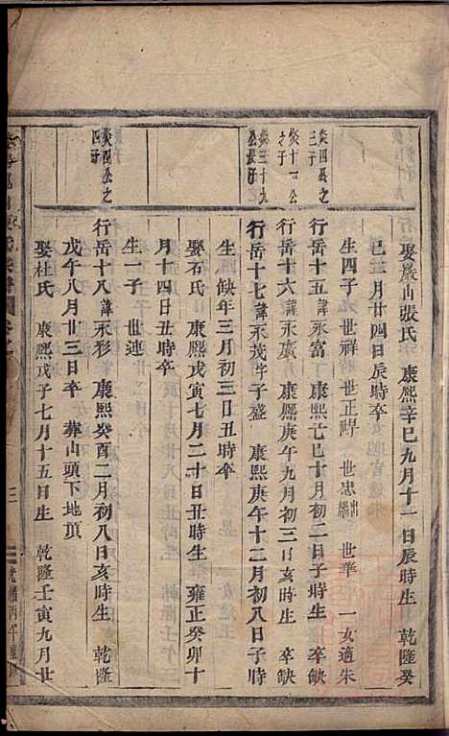 娶嚴山張氏 康熙辛巳九月十一日辰時生 乾隆癸
巳三月廿四日辰時卒
生四子 世祥 世正 世忠 世華 一女適朱
炎四公之三子
行岳十五諱永富 康熙丁巳十月初二日子時生 卒缺
炎十一公之子
行岳十六諱永廣 康熙庚午九月初三日亥時生 卒缺
炎三十九公長子
行岳十七諱永茂字子盛 康熙庚午十二月初八日子時
生 缺年三月初三日丑時卒
娶石氏 康熙戊寅七月二十日丑時生 雍正癸卯十
月十四日丑時卒
生一子 世連
炎四公之四子
行岳十八諱永彩 康熙癸酉二月初八日亥時生 乾隆
戊午八月廿三日卒 葬山頭下地頂
娶杜氏 康熙戊子七月十五日生 乾隆壬寅九月廿